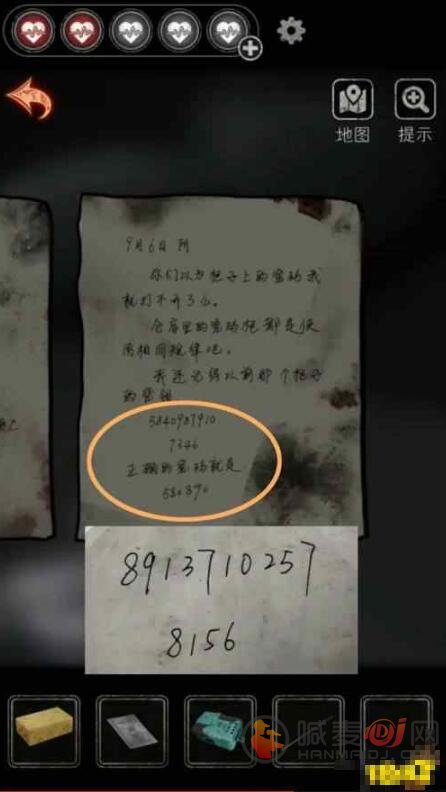 地图
提示
9月6日 阴
你们以为柜子上的密码我
就打不开了么。
仓库里的密码柜都是使
用相同规律吧。
我还记得以前那个柜子
的密码
5840987910
7346
正确的密码就是
580890
8913710257
8156
喊麦DJ网
HANMAIDJ.COM